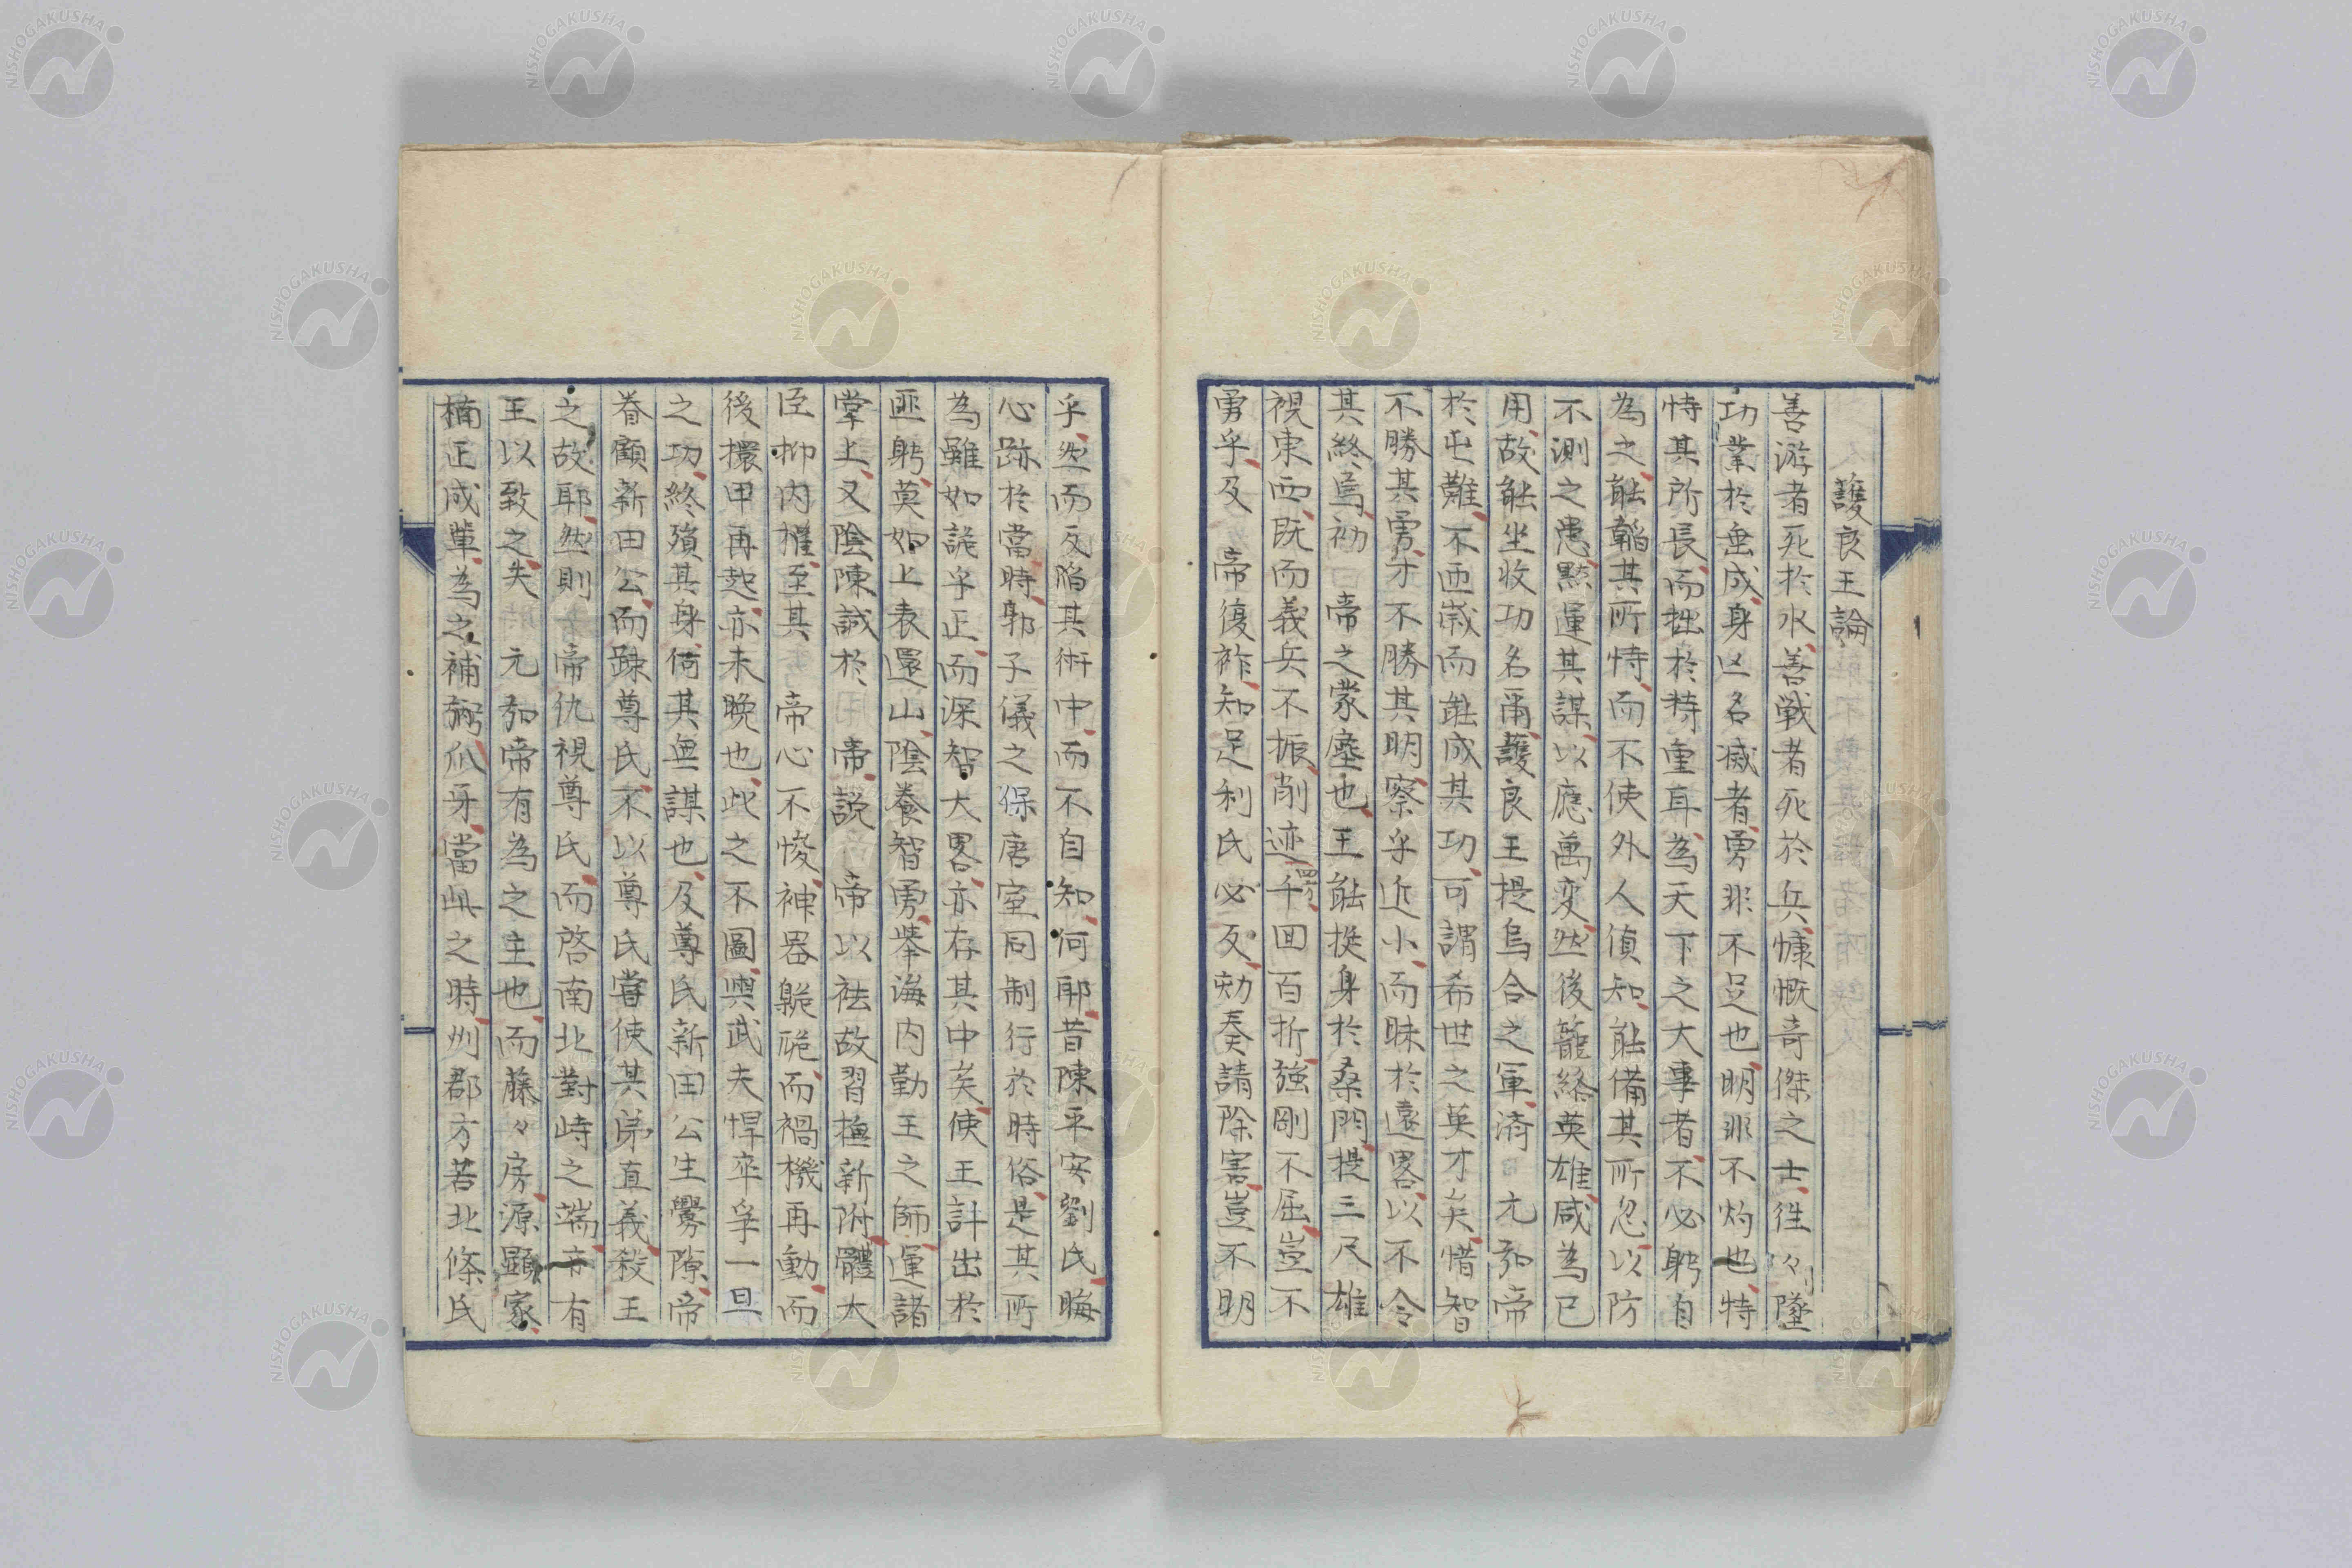 護良王論
善游者死於水善戦者死於兵慷慨奇傑之士往々墜
功業於垂成身亡名滅者勇非不足也明非不灼也特
恃其所長而拙於持重耳為天下之大事者不必躬自
為之能韜其所恃而不使外人偵知能備其所忽以防
不測之患黙運其謀以應萬変然後籠絡英雄咸為已
用故能坐收功名甭護良王提烏合之軍済 元弘帝
於屯難不匝歳而能成其功可謂希世之英才矣惜智
不勝其勇才不勝其明察乎近小而昧於遠畧以不令
其終焉初 帝之蒙塵也王能挺身於桑門提三尺雄
視東西既而義兵不振削迹四方千回百折強剛不屈豈不
勇乎及 帝復祚知足利氏必反勅奏請除害豈不明
乎然而反陷其術中而不自知何耶昔陳平安劉氏晦
心跡於當時郭子儀之保唐室同制行於時俗是其所
為雖如詭乎正而深智大畧亦存其中矣使王計出於
匪躬莫如上表還山陰養智勇挙海内勤王之師運諸
掌上又陰陳誠於 帝説 帝以袪故習撫新附體大
臣抑内権至其 帝心不悛神器臲卼而禍機再動而
後擐甲再起亦未晩也此之不圖與武夫悍卒爭一旦
之功終殞其身何其無謀也及尊氏新田公生釁隙帝
眷顧新田公而踈尊氏不以尊氏嘗使其弟直義殺王
之故耶然則 帝仇視尊氏而啓南北對峙之端亦有
王以致之失 元弘帝有為之主也而藤々房源顕家
楠正成輩為之補弼爪牙當此之時州郡方苦北條氏
NISHOGAKUSHA